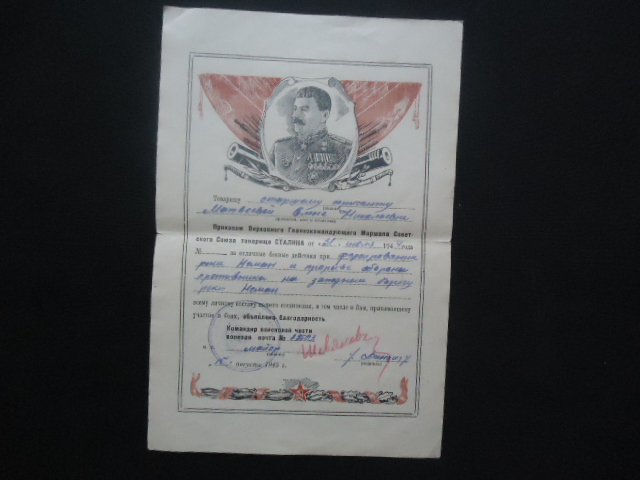 Товарищу старшему
Матвеевой Николаевне
Приказом Верховного Главнокомандующего Маршала Совет-
ского Союза товарища СТАЛИНА от «31» июля 1944 года
№ за отличные боевые действия при форсировании
реки Неман и прорыве обороны
противника на западном берегу
реки Неман
всему личному составу нашего соединения, в том числе и Вам, принимавшему
участие в боях, объявлена благодарность
Командир войсковой части
полевая почта №
майор
августа 1945 г.